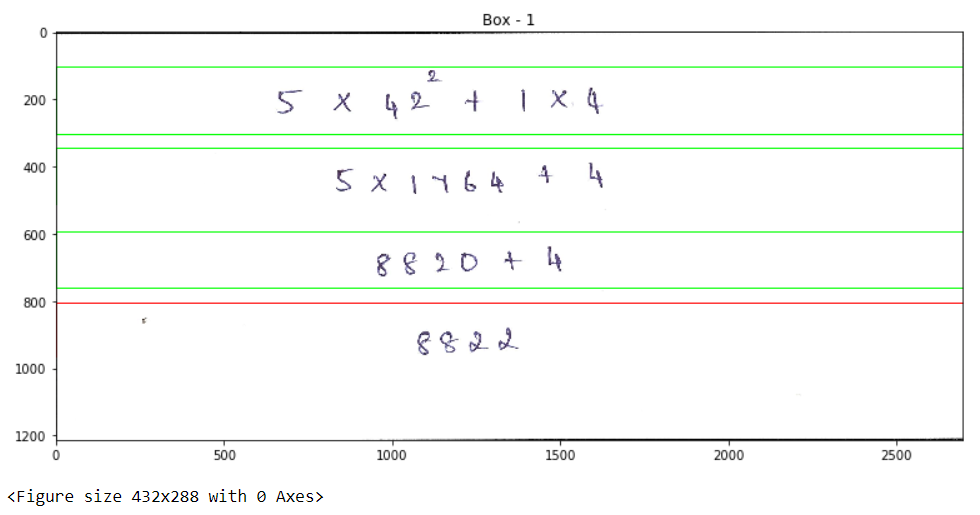 Box - 1
0
200
400
600
800
1000
1200
5 × 42² + 1 × 4
5 × 1764 + 4
8820 + 4
8822
0 500 1000 1500 2000 2500
<Figure size 432x288 with 0 Axes>